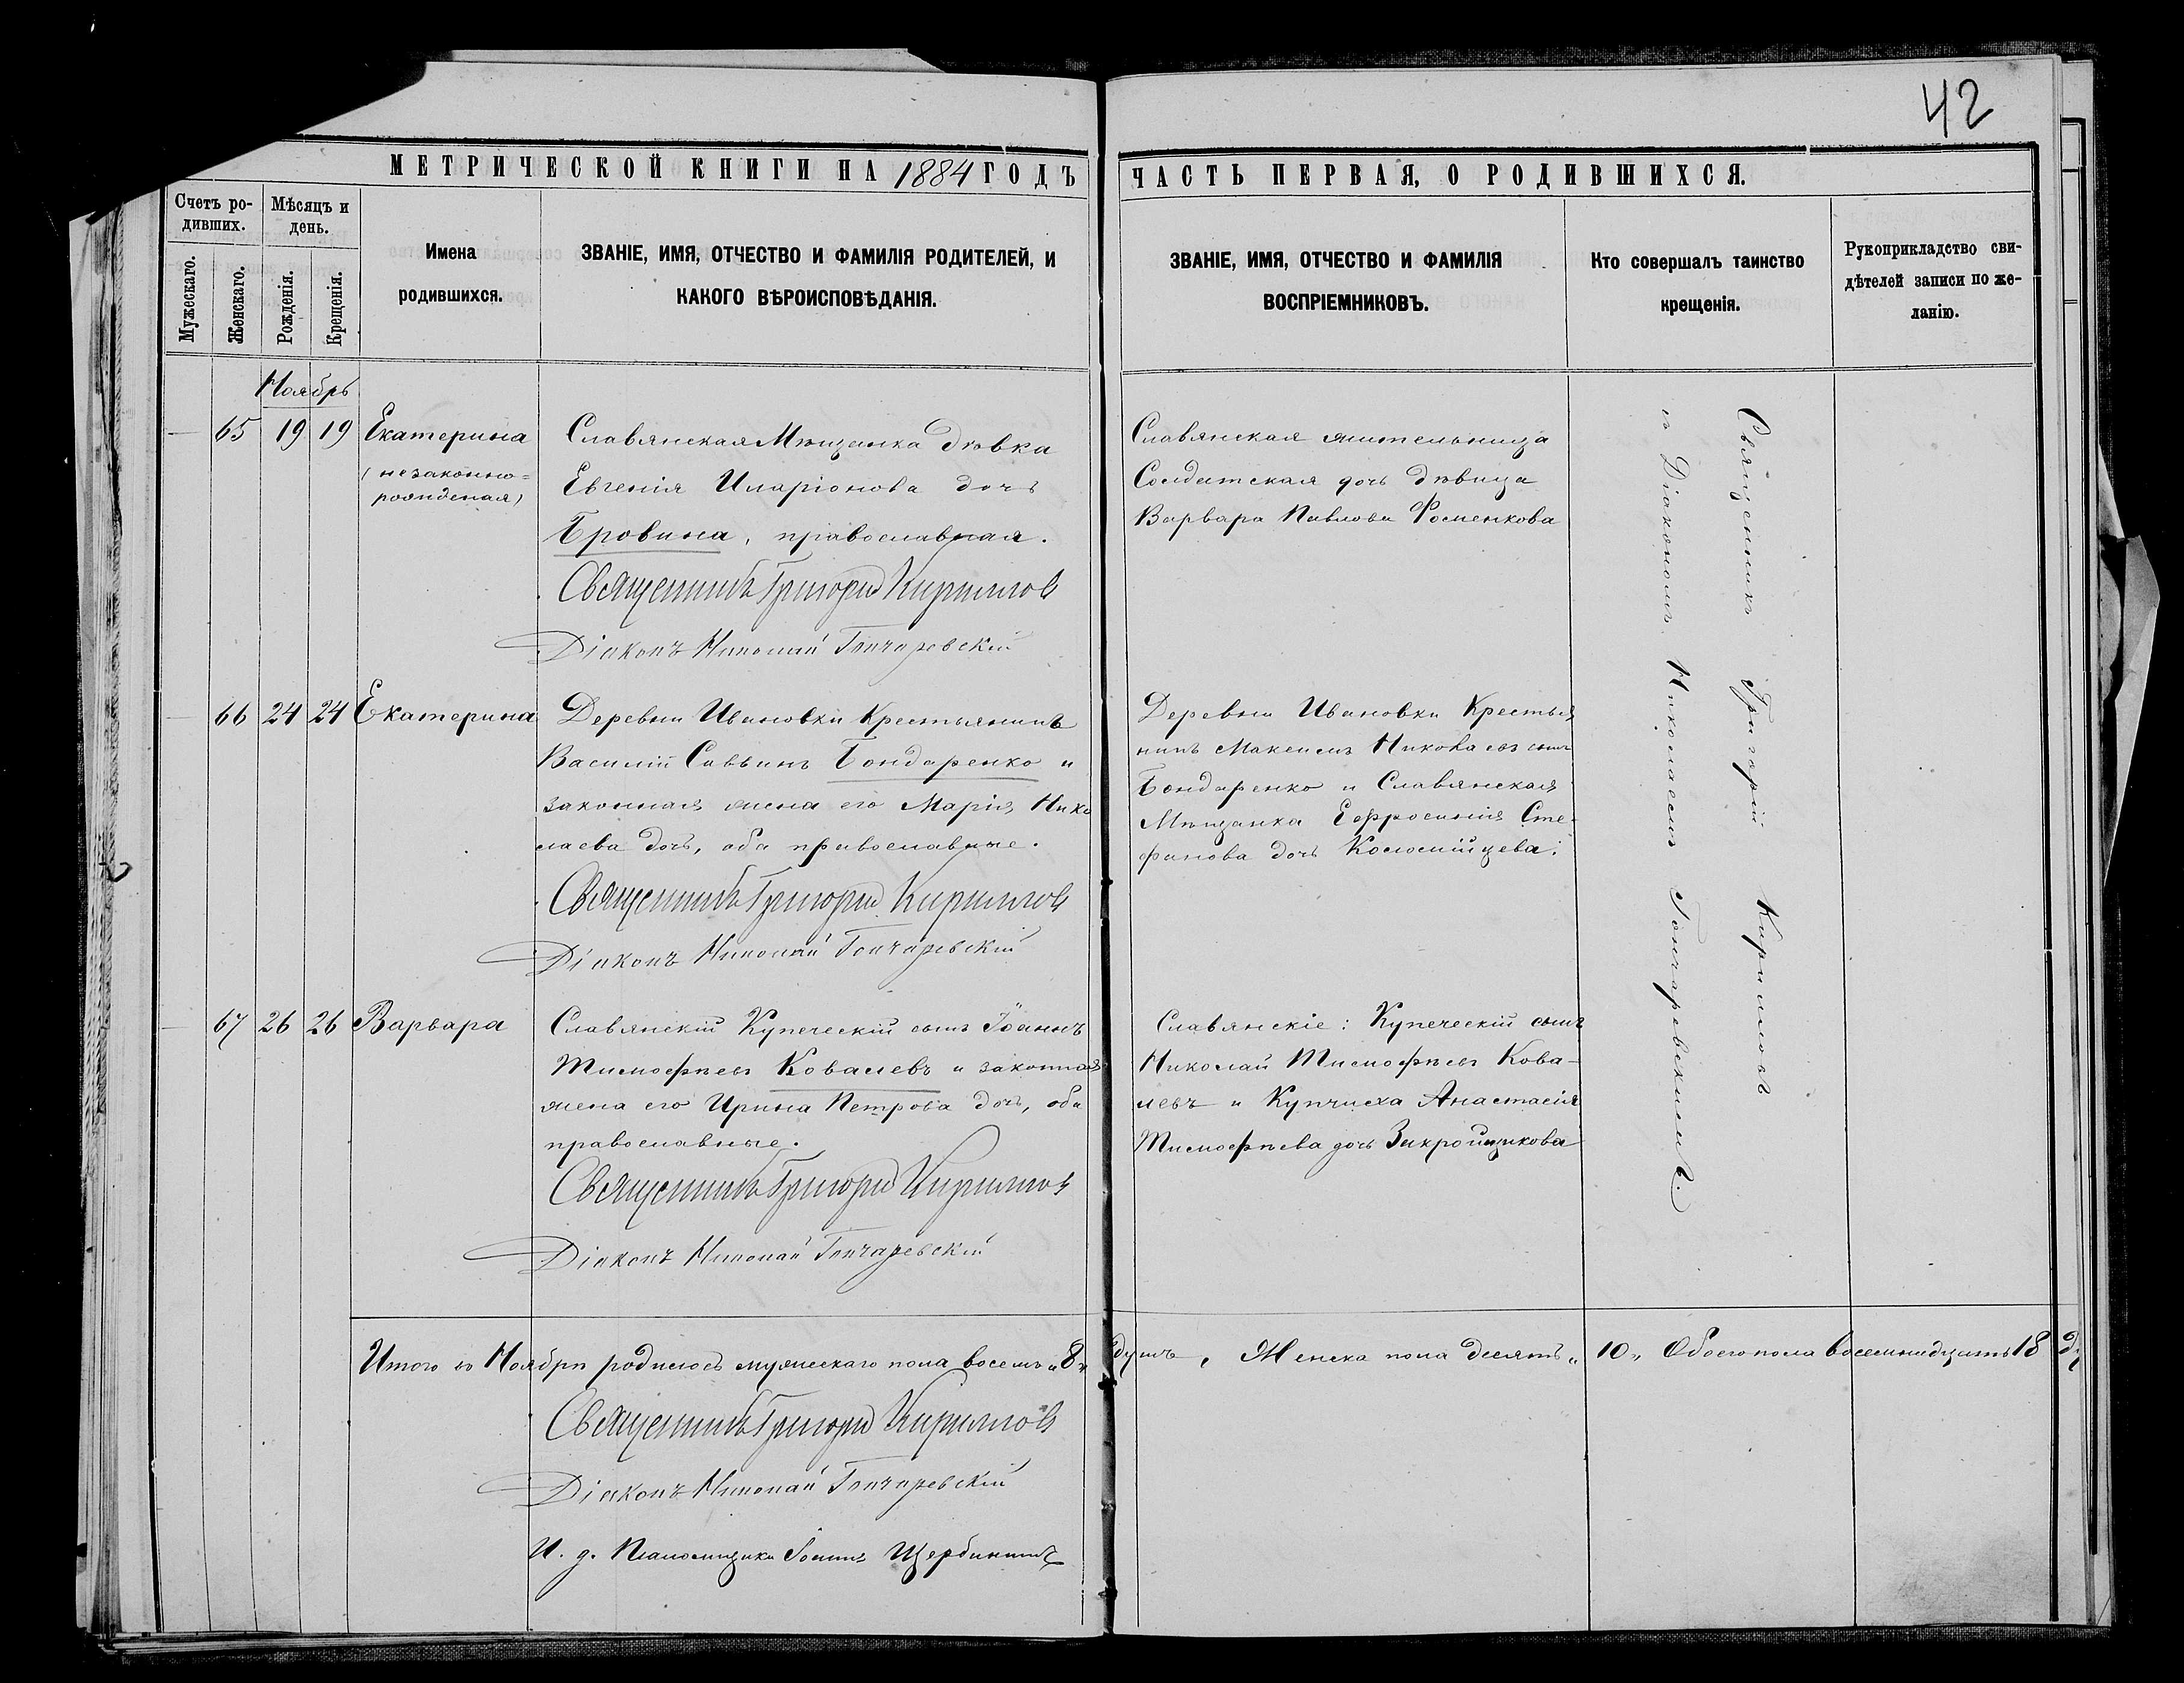 42
МЕТРИЧЕСКОЙ КНИГИ НА 1884 ГОДЪ
ЧАСТЬ ПЕРВАЯ, О РОДИВШИХСЯ.
Счетъ ро-
дивших.
Мужескаго.
Женскаго.
Мѣсяцъ и
день.
Рожденія.
Крещенія.
Имена
родившихся.
ЗВАНІЕ, ИМЯ, ОТЧЕСТВО И ФАМИЛІЯ РОДИТЕЛЕЙ, И
КАКОГО ВѢРОИСПОВѢДАНІЯ.
ЗВАНІЕ, ИМЯ, ОТЧЕСТВО И ФАМИЛІЯ
ВОСПРІЕМНИКОВЪ.
Кто совершалъ таинство
крещенія.
Рукоприкладство сви-
дѣтелей записи по же-
ланію.
Ноябрь
65 19 19 Екатерина
(незаконно=
рожденая)
Славянская Мѣщанка дѣвка
Евгенія Иларіонова дочь
Бровина, православная.
Священникъ Григорій Кирилловъ
Діаконъ Николай Гончаревскій
Славянская жительница
Солдатская дочь дѣвица
Варвара Павлова Фоменкова
Священникъ Григорій Кирилловъ
съ Діакономъ Николаемъ Гончаревскимъ.
66 24 24 Екатерина
Деревни Ивановки Крестьянинъ
Василій Саввинъ Бондаренко и
законная жена его Марія Нико
лаева дочь, оба православные.
Священникъ Григорій Кирилловъ
Діаконъ Николай Гончаревскій
Деревни Ивановки Крестья
нинъ Максимъ Николаевъ сынъ
Бондаренко и Славянская
Мѣщанка Евфросинія Сте-
фанова дочь Коломійцева.
67 26 26 Варвара
Славянскій Купеческій сынъ Іоаннъ
Тимофѣевъ Ковалевъ и законная
жена его Ирина Петрова дочь, оба
православные.
Священникъ Григорій Кирилловъ
Діаконъ Николай Гончаревскій
Славянскіе: Купеческій сынъ
Николай Тимофѣевъ Кова-
левъ и Купчиха Анастасія
Тимофѣева дочь Закройщикова
Итого въ Ноябрѣ родилось мужескаго пола восемь „8„ душъ, Женска пола десять „10„ Обоего пола восемнадцать 18
Священникъ Григорій Кирилловъ
Діаконъ Николай Гончаревскій
И. д. Псаломщика Іоаннъ Щербининъ